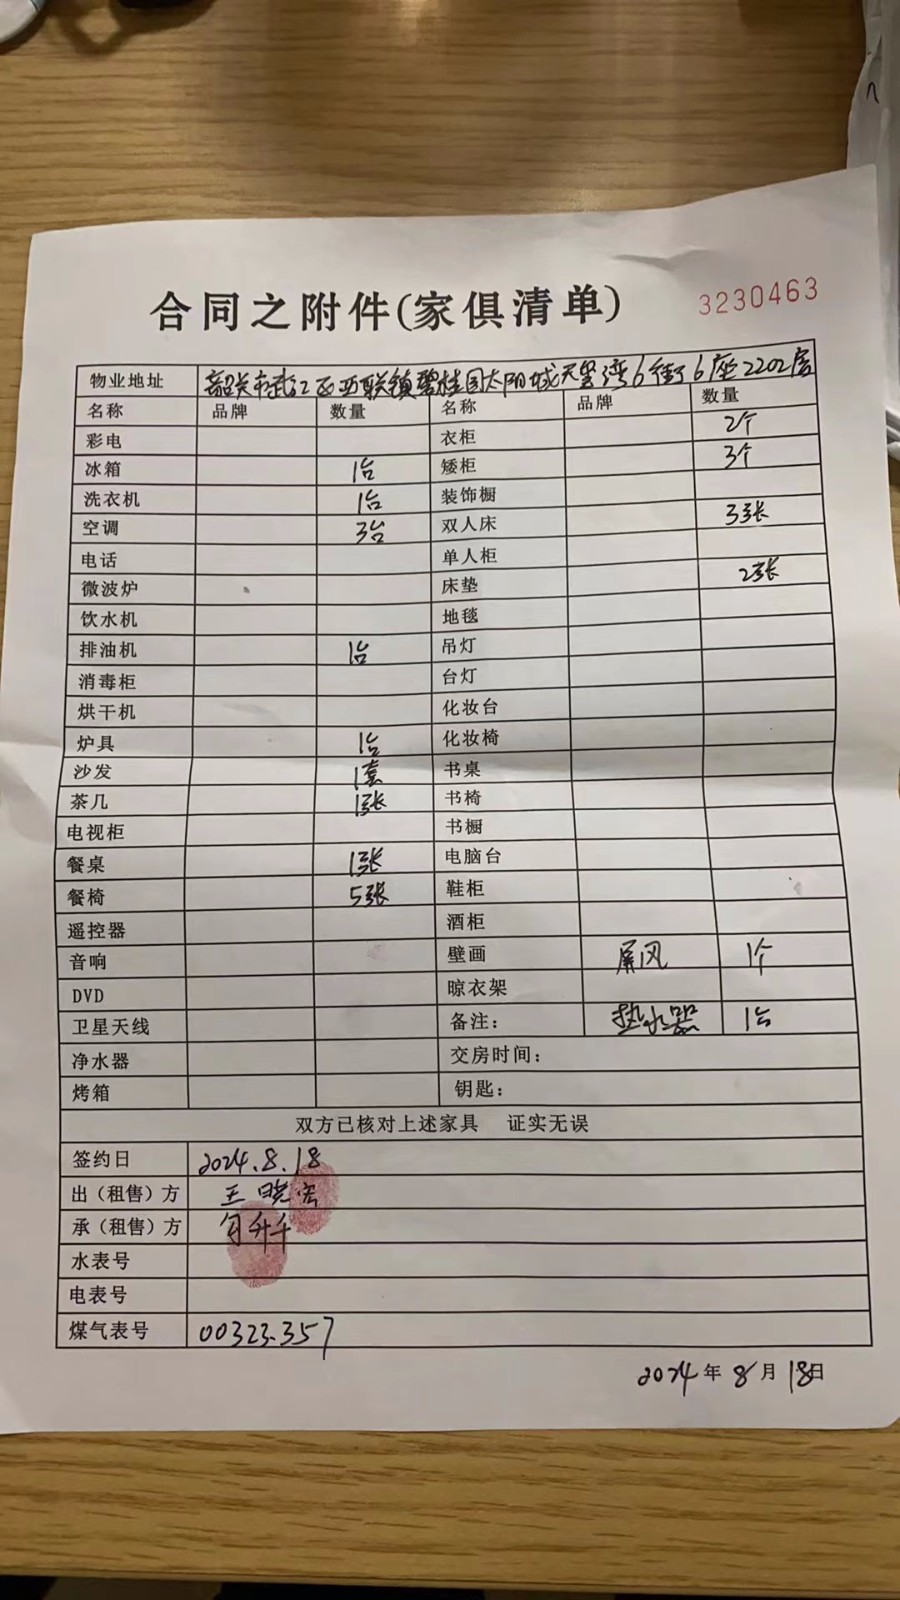 合同之附件(家俱清单) 3230463
物业地址 韶关市武江区西联镇碧桂园太阳城天玺湾6街6座2202房
名称 品牌 数量 名称 品牌 数量
彩电 衣柜 2个
冰箱 1台 矮柜 3个
洗衣机 1台 装饰橱
空调 3台 双人床 3张
电话 单人柜
微波炉 床垫 2张
饮水机 地毯
排油机 1台 吊灯
消毒柜 台灯
烘干机 化妆台
炉具 1台 化妆椅
沙发 1套 书桌
茶几 1张 书椅
电视柜 书橱
餐桌 1张 电脑台
餐椅 5张 鞋柜
遥控器 酒柜
音响 壁画 屏风 1个
DVD 晾衣架
卫星天线 备注: 热水器 1台
净水器 交房时间:
烤箱 钥匙:
双方已核对上述家具 证实无误
签约日 2024.8.18
出（租售）方 王晓宏
承（租售）方
水表号
电表号
煤气表号 00323.357
2024年8月18日